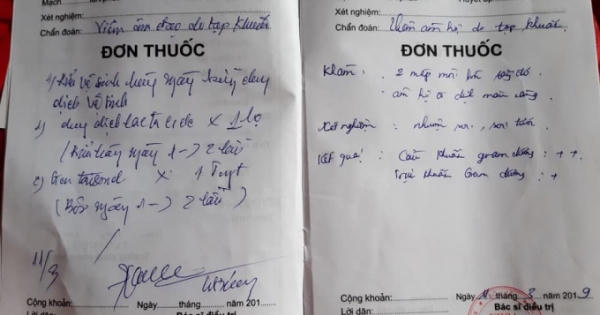 Xét nghiệm:
Chẩn đoán: Viêm âm đạo do tạp khuẩn
ĐƠN THUỐC
vệ sinh hàng ngày bằng dung
dịch vệ sinh
1) dung dịch lactacide x 1 lọ
ngày 1 -> 2 lần)
2) x 1 Tuýt
(Bôi ngày 1 -> 2 lần)
11/3
Cộng khoản:
Ngày tháng năm 201
Lời dặn:
Bác sĩ điều trị
Xét nghiệm:
Chẩn đoán: Viêm âm hộ do tạp khuẩn
ĐƠN THUỐC
Khám: 2 mép môi
âm hộ dịch màu vàng
Xét nghiệm: nhuộm soi, soi tươi
Kết quả: Cầu khuẩn gram dương: ++
Trực khuẩn Gram dương: +
Cộng khoản:
Ngày 11 tháng 3 năm 2019
Lời dặn:
Bác sĩ điều trị